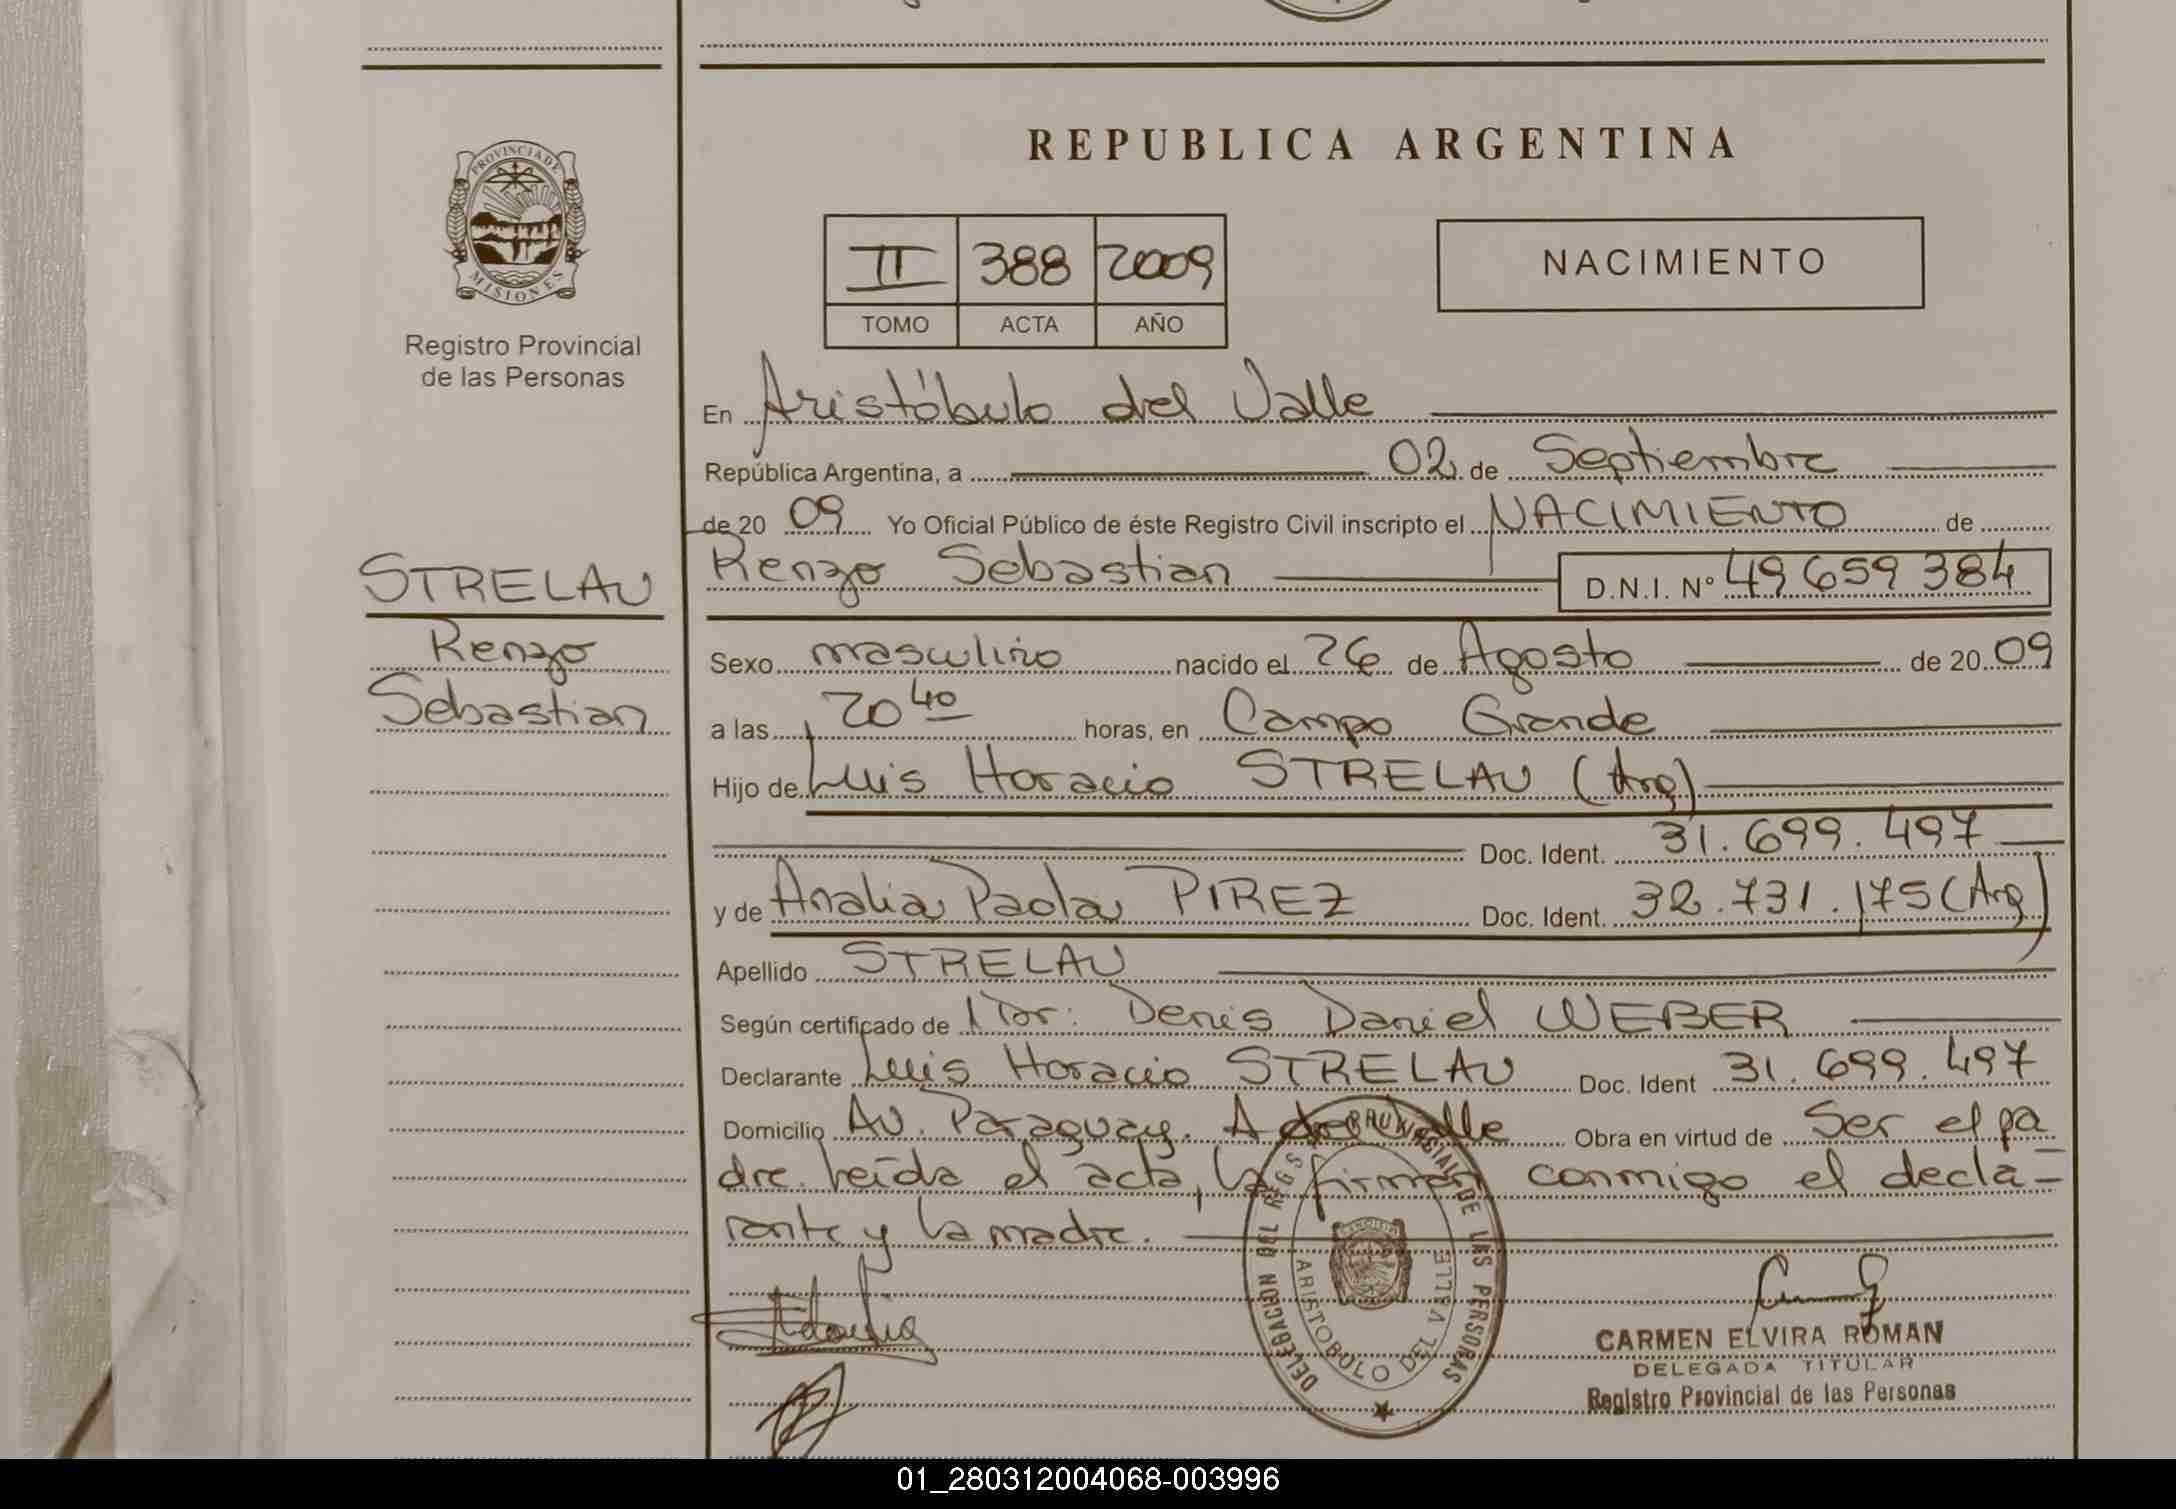 REPUBLICA ARGENTINA
PROVINCIA DE MISIONES
Registro Provincial
de las Personas
II 388 2009
TOMO ACTA AÑO
NACIMIENTO
En Aristóbulo del Valle
República Argentina, a 02 de Septiembre
de 20 09 Yo Oficial Público de éste Registro Civil inscripto el NACIMIENTO de
STRELAU
Renzo
Sebastian
Renzo Sebastian D.N.I. Nº 49 659 384
Sexo masculino nacido el 26 de Agosto de 20 09
a las 20 40 horas, en Campo Grande
Hijo de Luis Horacio STRELAU (Arg)
Doc. Ident. 31.699.497
y de Analia Paola PIREZ Doc. Ident. 32.731.175 (Arg)
Apellido STRELAU
Según certificado de Dr: Denis Daniel WEBER
Declarante Luis Horacio STRELAU Doc. Ident 31.699.497
Domicilio Av. Paraguay. A del Valle Obra en virtud de Ser el pa
dre. Leída el acta, la firman conmigo el decla-
rante y la madre.
DELEGACION DEL REGS PROVINCIAL DE LAS PERSONAS
ARISTOBULO DEL VALLE
CARMEN ELVIRA ROMAN
DELEGADA TITULAR
Registro Provincial de las Personas
01_280312004068-003996